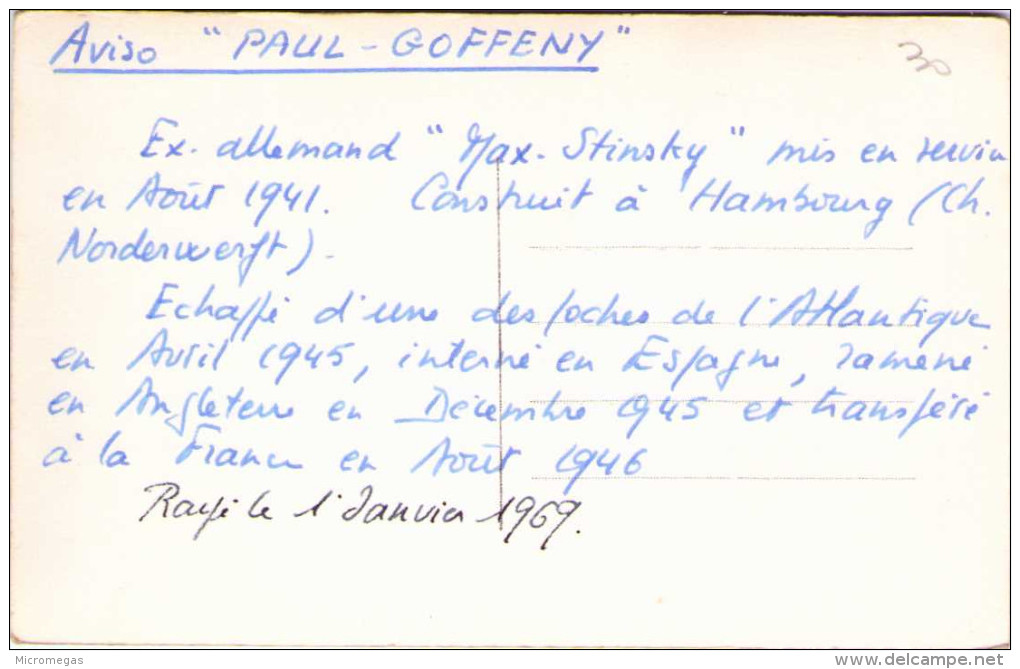 Aviso "PAUL-GOFFENY"
Ex-allemand "Max-Stinsky" mis en service
en Août 1941. Construit à Hambourg (Ch.
Norderwerft).
Echappé d'une des poches de l'Atlantique
en Avril 1945, interné en Espagne, ramené
en Angleterre en Décembre 1945 et transféré
à la France en Août 1946
Rayé le 1 Janvier 1969.
Micromegas
www.delcampe.net